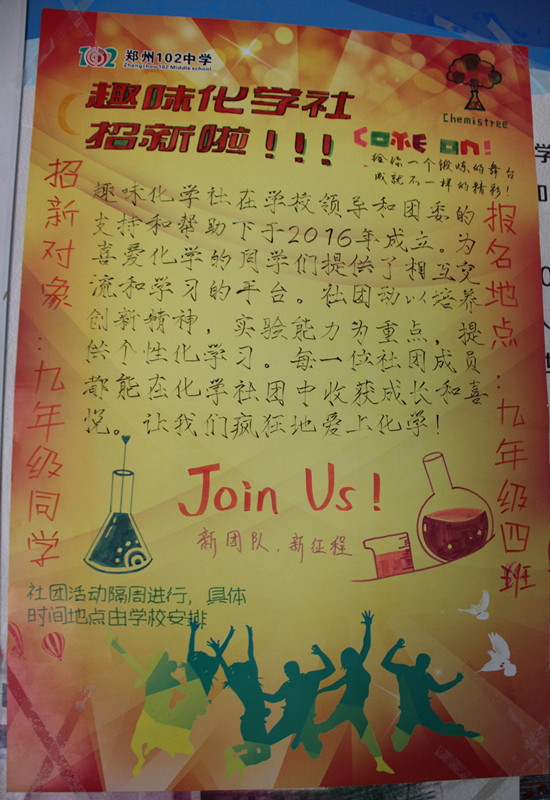 102 郑州102中学
Zhengzhou 102 Middle school
趣味化学社
招新啦!!!
Chemistree
COME ON!
给你一个锻炼的舞台
成就不一样的精彩!
招新对象:九年级同学
趣味化学社在学校领导和团委的
支持和帮助下于2016年成立。为
喜爱化学的同学们提供了相互交
流和学习的平台。社团动以培养
创新精神,实验能力为重点,提
供个性化学习。每一位社团成员
都能在化学社团中收获成长和喜
悦。让我们疯狂地爱上化学!
报名地点:九年级四班
Join Us!
新团队,新征程
社团活动隔周进行,具体
时间地点由学校安排